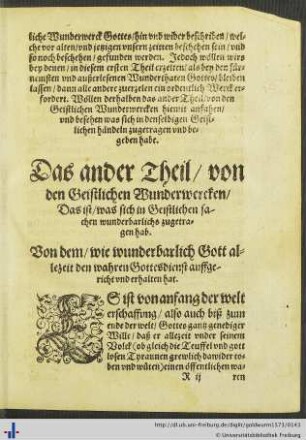 liche Wunderwerck Gottes / hin vnd wider beschriben / wel-
che vor alten / vnd jetzigen vnsern zeiten beschehen sein / vnd
so noch beschehen / gefunden werden. Jedoch wöllen wirs
bey denen / in disem ersten Theil erzelten / als bey den für-
nemisten vnd außerlesenen Wunderthaten Gottes / bleiben
lassen / dann alle andere zuerzelen ein ordentlich Werck er-
fordert. Wöllen derhalben das ander Theil / von den
Geistlichen Wunderwercken hiemit anfahen /
vnd besehen was sich in denselbigen Geist-
lichen händeln zugetragen vnd be-
geben habe.
Das ander Theil / von
den Geistlichen Wunderwercken /
Das ist / was sich in Geistlichen sa-
chen wunderbarlichs zugetra-
gen hab.
Von dem / wie wunderbarlich Gott al-
lezeit den wahren Gottesdienst auffge-
richt vnd erhalten hat.
ES ist von anfang der welt
erschaffung / also auch biß zum
ende der welt / Gottes gantz genediger
Wille / daß er allezeit vnder seinem
Volck (ob gleich die Teuffel vnd gott
losen Tyrannen grewlich dawider to-
ben vnd wüten) einen öffentlichen wa-
R ij
ren
http://dl.ub.uni-freiburg.de/diglit/goldwurm1573/0143
© Universitätsbibliothek Freiburg